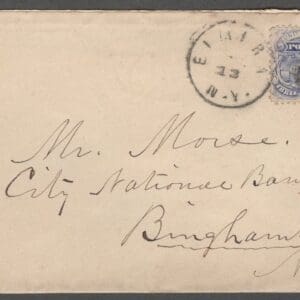 ELMIRA
13
N.Y.
PO
Mr. Morse.
City National Ban
Bingham
N